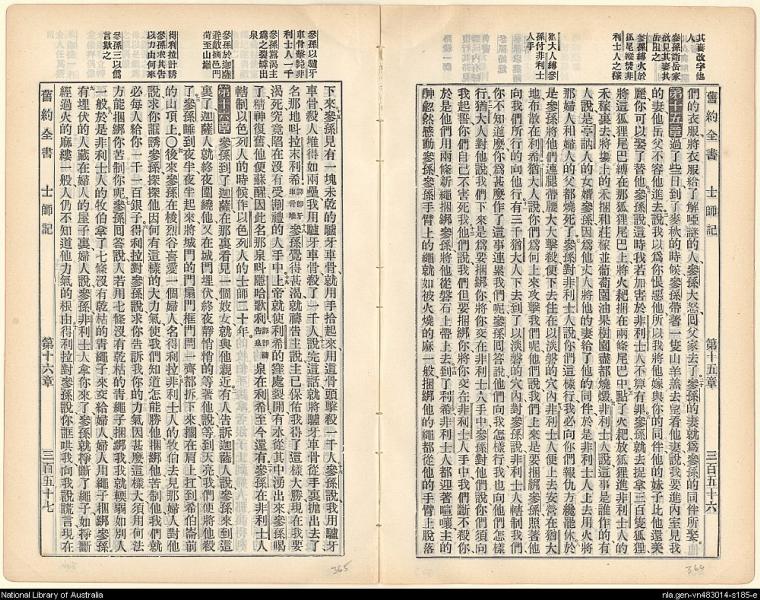 舊約全書
士師記
第十五章
三百五十六
其妻改字他人
參孫縛火於狐尾燬非利士人之禾稼
猶大人縛參孫付非利士人手
們的衣服將衣服給了解啞謎的人參孫大怒回父家去了參孫的妻就為參孫的同伴所娶
第十五章過了些日到了麥秋的時候參孫帶著一隻山羊羔去望看他妻說我要進內室見我
的妻他岳父不容他進去說我以為你恨惡他所以我將他嫁與你的同伴他的妹子比他還美
麗你可以娶了替他參孫說這時我若加害於非利士人不算有罪參孫就去捉拿三百隻狐狸
將這狐狸尾巴縛在那狐狸尾巴上將火把捆在兩條尾巴中點了火把放狐狸進非利士人的
人說是亭訥人的女婿參孫因為他丈人將他的妻給了他的同伴於是非利士人上去用火將
那婦人和婦人的父都燒死了參孫對非利士人說你們這樣行我必向你們報仇方纔罷休於
是參孫將他們連腿帶腰大大擊殺便下去住在以淡磐的穴內非利士人便上去安營在猶大
地布散在利希猶大人說你們為何上來攻擊我們呢他們說我們上來是要捆綁參孫照著他
向我們所行的向他行有三千猶大人下去到了以淡磐的穴內對參孫說非利士人轄制我們
你不知道麼你為甚麼作了這事連累我們呢參孫回答說他們向我怎樣行我也向他們怎樣
行猶大人對他說我們下來是為要捆綁你將你交在非利士人手中參孫對他們說你們須向
我起誓你們自己不害死我他們說我們但要捆綁你將你交在非利士人手中我們斷不殺你
於是他們用兩條新繩捆綁參孫將他從磐石上帶上去到了利希非利士人都迎著喧嚷主的
神忽然感動參孫參孫手臂上的繩就如被火燒的麻一般捆綁他的繩都從他的手臂上脫落
參孫以驢牙車骨擊非利士人一千
參孫渴主為之裂窪出泉
參孫於迦薩遊獻擄邑門荷至山嶺
得利拉計誘參孫求其告以力由何來
參孫三以僞言欺之
下來參孫見有一塊未乾的驢牙車骨就用手拾起來用這骨頭擊殺一千人參孫說我用驢牙
車骨殺人堆得如兩壘我用驢牙車骨殺了一千人說完這話就將驢牙車骨從手裏擲出去了
名那地叫拉末利希參孫覺得甚渴就禱告主說主已保佑我得了這樣大勝現在我要
渴死究竟陷在沒有受割禮的人手中上帝就使利希的窪處裂開有水從其中湧出來參孫喝
了精神復舊他便甦醒因此名那泉叫隱哈歌利泉在利希至今還有參孫在非利士人
轄制以色列人的時候作以色列人的士師二十年
第十六章參孫到了迦薩在那裏看見一個妓女就與他親近有人告訴迦薩人說參孫來到這
裏了迦薩人就終夜圍繞他又在城門埋伏終夜靜悄悄的等著他說等到天亮我們便將他殺
參孫睡到夜半夜半起來將城門的門扇門框門閂一齊都拆下來擱在肩上扛到希伯崙前
的山頂上○後來參孫在梭烈谷喜愛一個婦人名得利拉非利士人的牧伯去見那婦人對他
說求你誆誘參孫探探他因何有這樣的大力氣使我們知道怎能勝他捆綁他苦制他我們
必每人給你一千一百張子得利拉對參孫說求你告訴我你的力氣因甚麼這樣大須用何法
方能捆綁你苦制你呢參孫回答說人若用七條沒有乾結的青繩子捆綁我我就輭弱如別人
一般於是非利士人的牧伯拿了七條沒有乾結的青繩子來交給婦人婦人用繩子捆綁參孫
有埋伏的人藏在婦人的屋子裏婦人說參孫非利士人拿你來了參孫就掙斷了繩子如掙斷
經過火的麻縷一般人仍不知道他力氣的根由得利拉對參孫說你誆哄我向我說謊言現在
舊約全書
士師記
第十六章
三百五十七
365
364
National Library of Australia
nla.gen-vn483014-s185-e